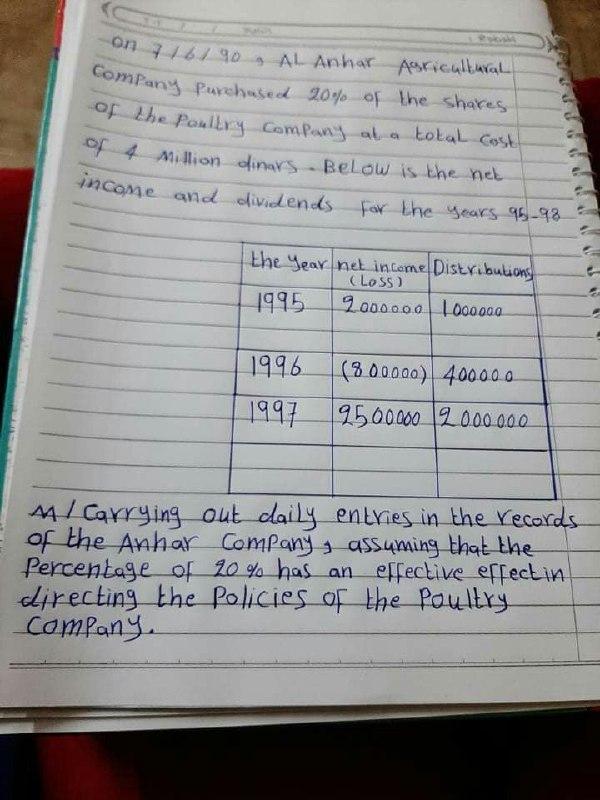 on 7/6/90, AL Anhar Agricultural
Company Purchased 20% of the shares
of the Poultry Company at a total cost
of 4 Million dinars. Below is the net
income and dividends for the years 95-98
the Year net income (Loss) Distributions
1995 2000000 1000000
1996 (800000) 400000
1997 2500000 2000000
M/ Carrying out daily entries in the records
of the Anhar Company, assuming that the
Percentage of 20% has an effective effect in
directing the Policies of the Poultry
Company.